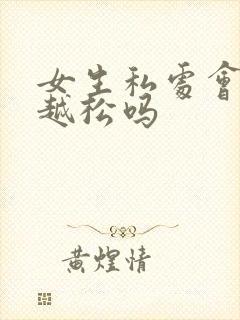 女生私處會
越松吗
黄煌情